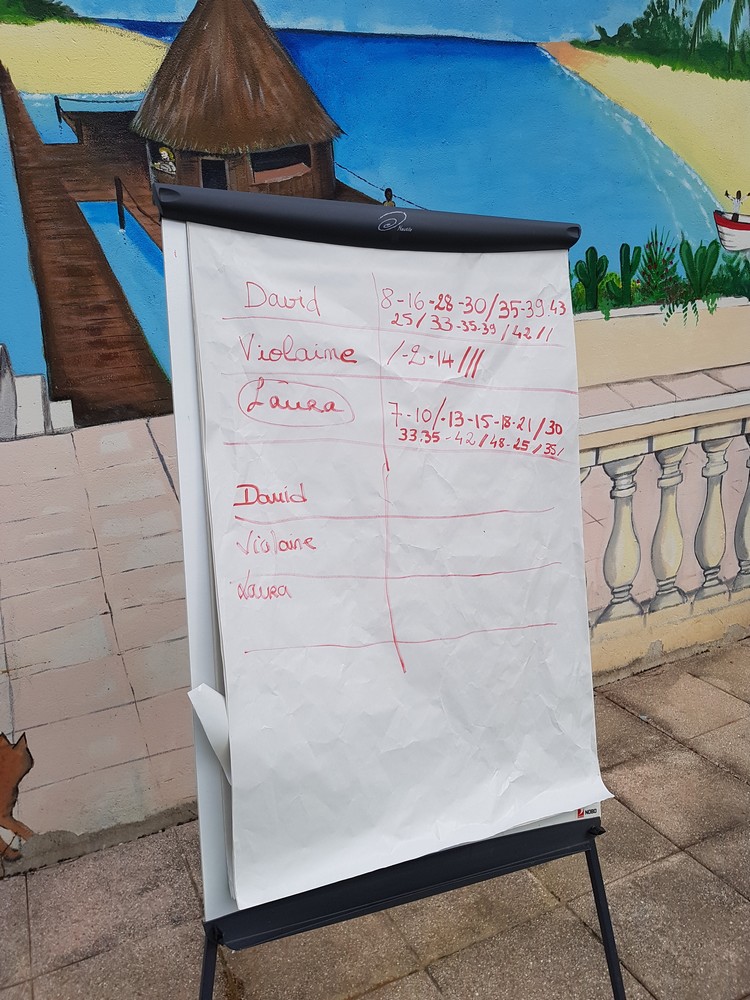 Nautile
David 8-16-28-30/35-39.43
25/33-35.39/42//
Violaine /-2-14///
Laura 7-10/-13-15-18-21/30
33.35-42/48-25/35/
David
Violaine
Laura
NOBO